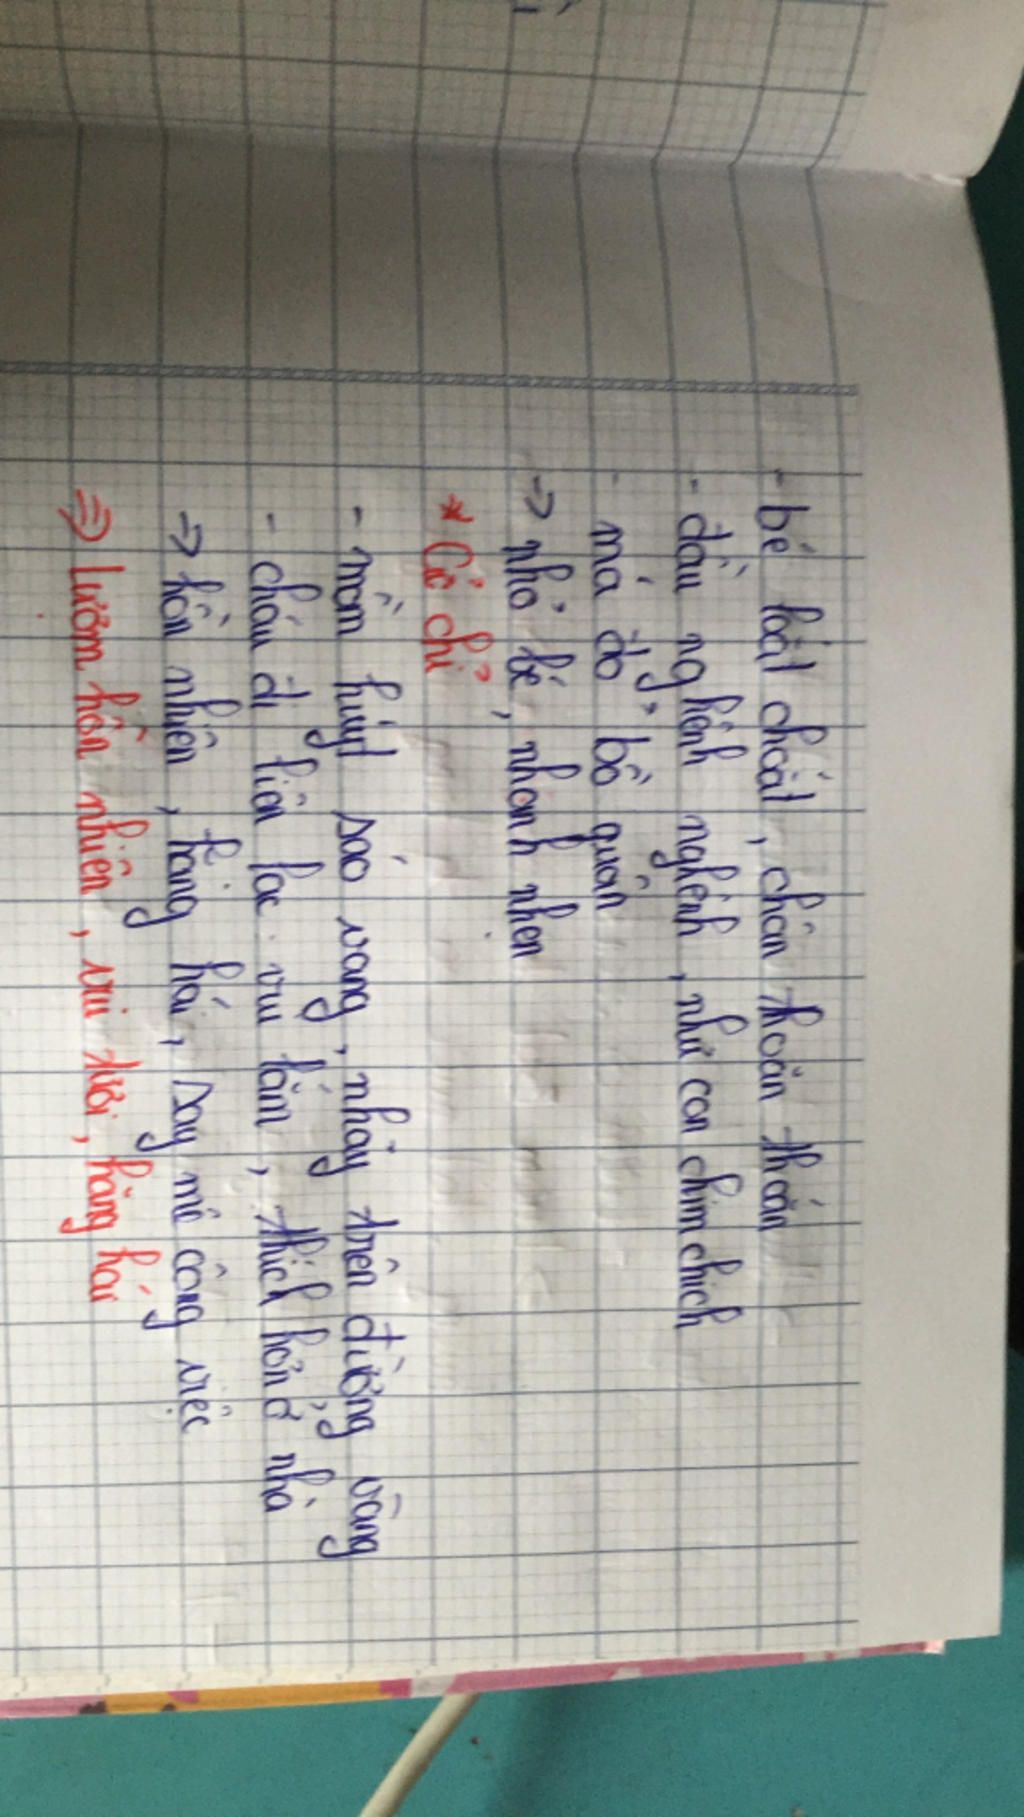 - bé loắt choắt, chân thoăn thoắt
- đầu nghênh nghênh, như con chim chích
- má đỏ bồ quân
-> nhỏ bé, nhanh nhẹn
* Cử chỉ
- mồm huýt sáo vang, nhảy trên đường vàng
- cháu đi liên lạc vui lắm, thích hơn ở nhà
-> hồn nhiên, hăng hái, say mê công việc
=> Lượm hồn nhiên, vui tươi, hăng hái